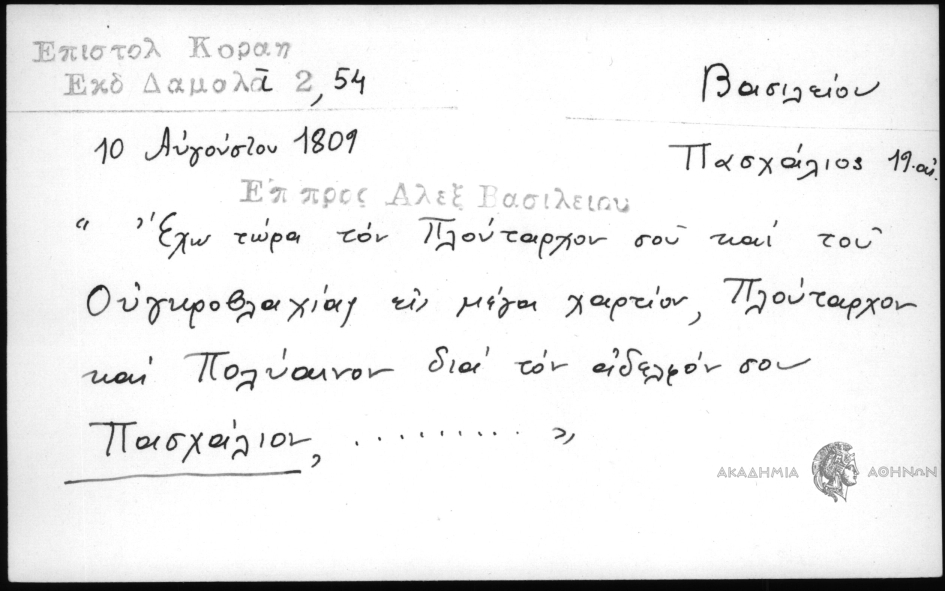 Επιστολ Κοραη
Εκδ Δαμολᾶ 2, 54
Βασιλείου
10 Αὐγούστου 1809
Πασχάλιος 19. αἰ.
Επ προς Αλεξ Βασιλειου
“ Ἔχω τώρα τόν Πλούταρχον σοῦ καί τοῦ
Οὐγκροβλαχίας εἰς μέγα χαρτίον, Πλούταρχον
καί Πολύαινον διά τόν ἀδελφόν σου
Πασχάλιον, .......... »
ΑΚΑΔΗΜΙΑ ΑΘΗΝΩΝ